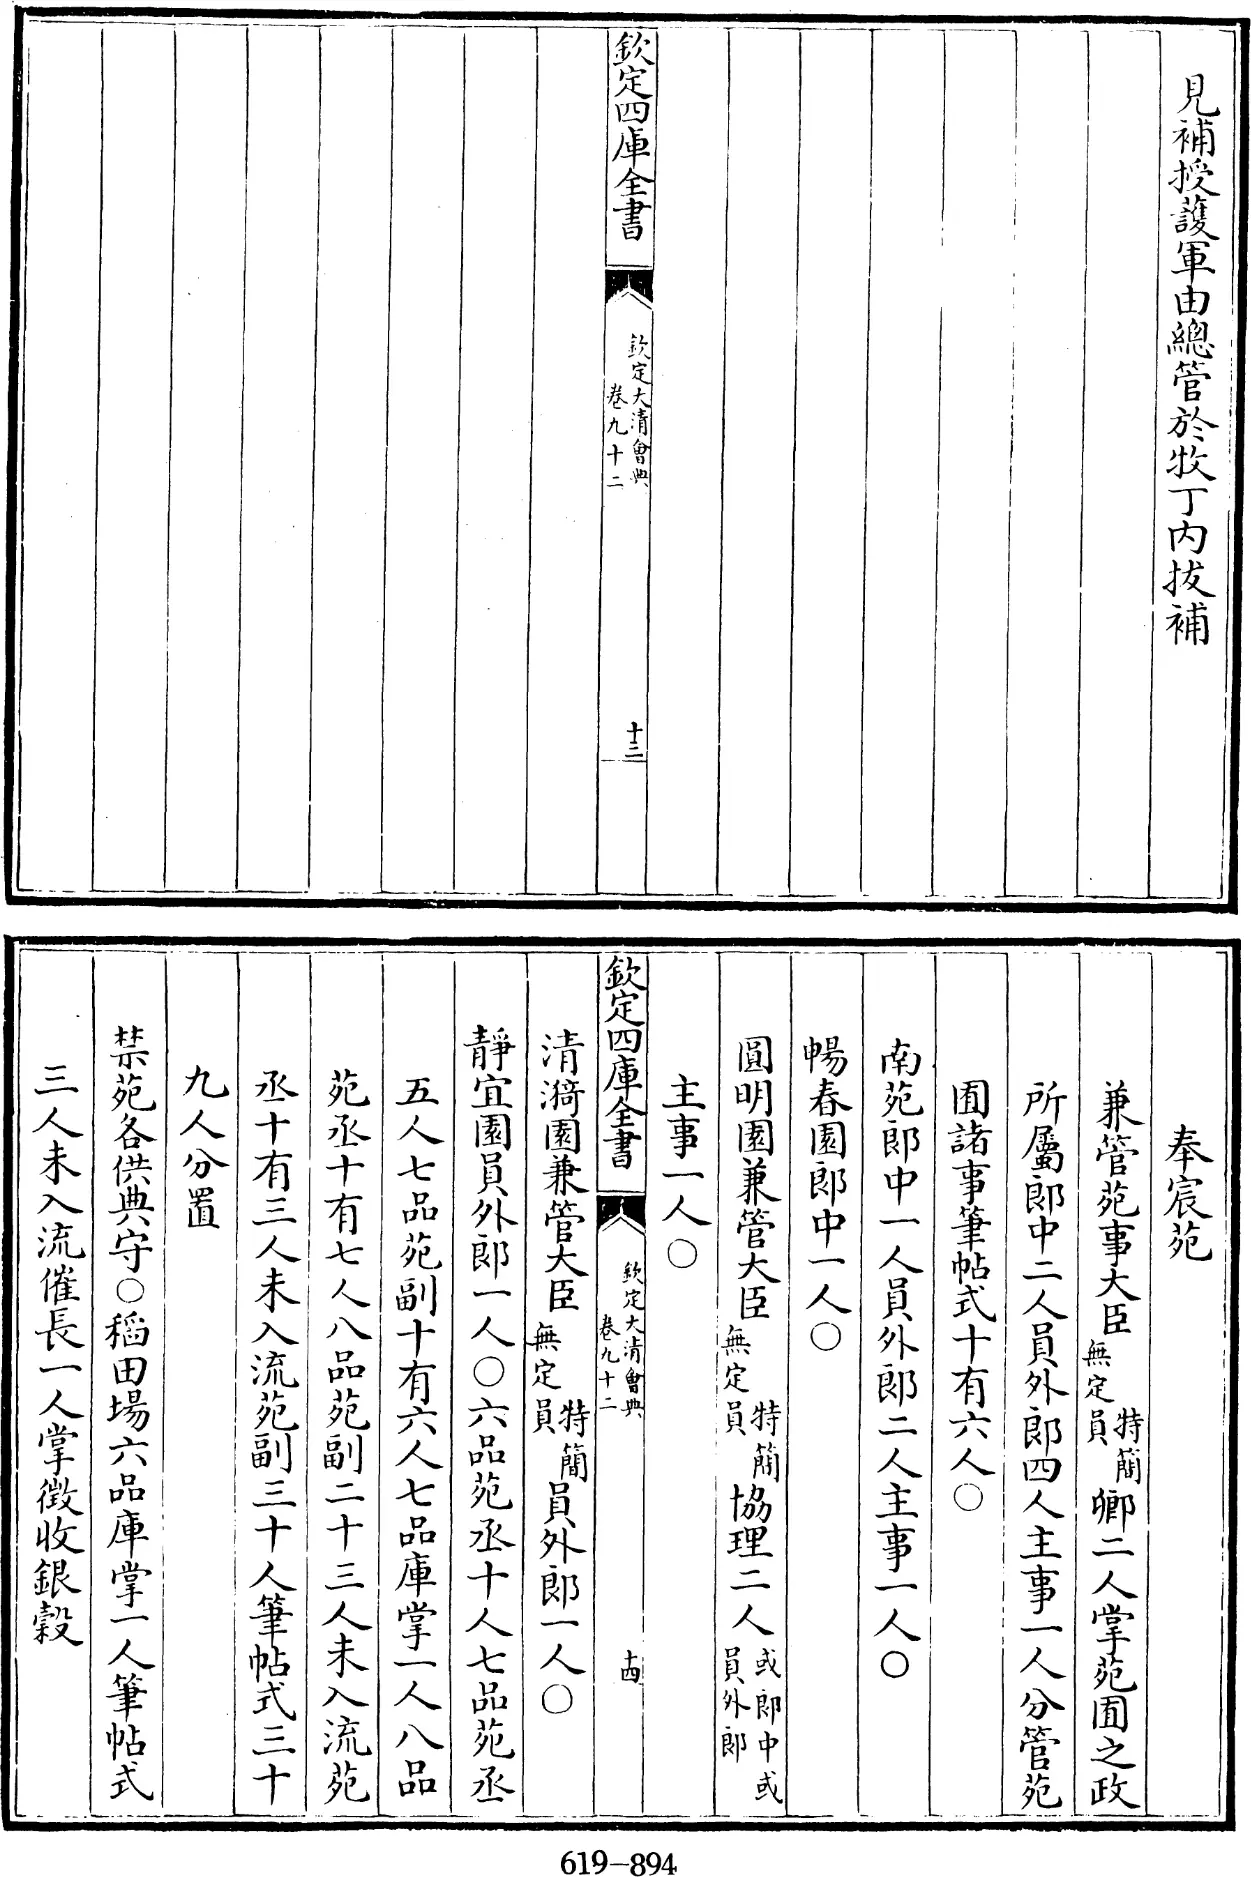 見補授護軍由總管於牧丁內拔補
欽定四庫全書
欽定大清會典
卷九十二
十三
奉宸苑
兼管苑事大臣特簡無定員卿二人掌苑囿之政
所屬郎中二人員外郎四人主事一人分管苑
囿諸事筆帖式十有六人○
南苑郎中一人員外郎二人主事一人○
暢春園郎中一人○
圓明園兼管大臣特簡無定員協理二人或郎中或員外郎
主事一人○
欽定四庫全書
欽定大清會典
卷九十二
十四
清漪園兼管大臣特簡無定員員外郎一人○
靜宜園員外郎一人○六品苑丞十人七品苑丞
五人七品苑副十有六人七品庫掌一人八品
苑丞十有七人八品苑副二十三人未入流苑
丞十有三人未入流苑副三十人筆帖式三十
九人分置
禁苑各供典守○稻田場六品庫掌一人筆帖式
三人未入流催長一人掌徵收銀穀
619-894